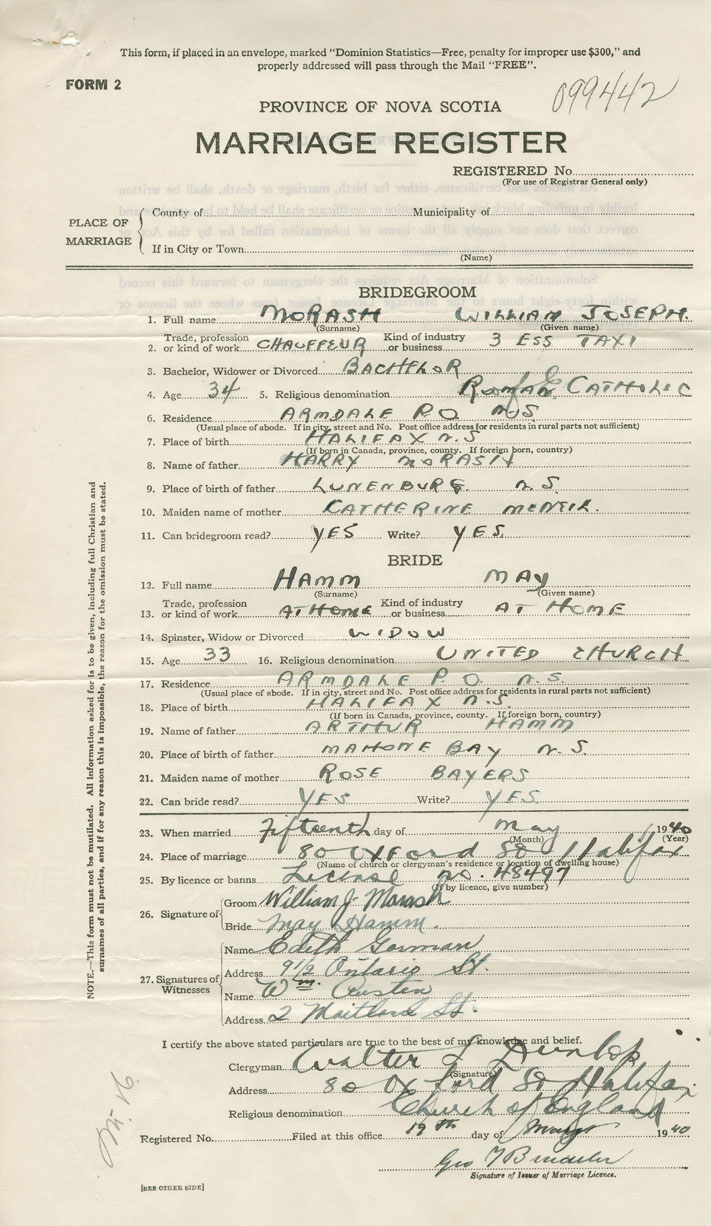 This form, if placed in an envelope, marked "Dominion Statistics—Free, penalty for improper use $300," and
properly addressed will pass through the Mail "FREE".
FORM 2
099442
PROVINCE OF NOVA SCOTIA
MARRIAGE REGISTER
REGISTERED No.
(For use of Registrar General only)
PLACE OF MARRIAGE
County of Municipality of
If in City or Town
(Name)
BRIDEGROOM
1. Full name MORASH WILLIAM JOSEPH.
(Surname) (Given name)
2. Trade, profession or kind of work CHAUFFEUR Kind of industry or business 3 ESS TAXI
3. Bachelor, Widower or Divorced BACHELOR
4. Age 34 5. Religious denomination ROMAN CATHOLIC
6. Residence ARMDALE P.O. N.S
(Usual place of abode. If in city, street and No. Post office address for residents in rural parts not sufficient)
7. Place of birth HALIFAX N.S.
(If born in Canada, province, county. If foreign born, country)
8. Name of father HARRY MORASH
9. Place of birth of father LUNENBURG N.S.
10. Maiden name of mother CATHERINE
11. Can bridegroom read? YES Write? YES.
BRIDE
12. Full name HAMM MAY
(Surname) (Given name)
13. Trade, profession or kind of work AT HOME Kind of industry or business AT HOME
14. Spinster, Widow or Divorced WIDOW
15. Age 33 16. Religious denomination UNITED CHURCH
17. Residence ARMDALE P.O. N.S.
(Usual place of abode. If in city, street and No. Post office address for residents in rural parts not sufficient)
18. Place of birth HALIFAX N.S.
(If born in Canada, province, county. If foreign born, country)
19. Name of father ARTHUR HAMM
20. Place of birth of father MAHONE BAY N.S.
21. Maiden name of mother ROSE BAYERS
22. Can bride read? YES Write? YES.
23. When married Fifteenth day of May 1940
(Month) (Year)
24. Place of marriage 80 Oxford St Halifax
(Name of church or clergyman's residence or location of dwelling house)
25. By licence or banns License no. 48497
(If by licence, give number)
26. Signature of
Groom William J. Morash
Bride May Hamm.
27. Signatures of Witnesses
Name Edith Gorman
Address 9½ Ontario St.
Name Wm. Austen
Address 2 Maitland St.
I certify the above stated particulars are true to the best of my knowledge and belief.
Clergyman Walter L Dunlop
(Signature)
Address 80 Oxford St Halifax
Religious denomination Church of England
Registered No. Filed at this office 19th day of May 1940
Geo
Signature of Issuer of Marriage Licence.
[SEE OTHER SIDE]
NOTE.—This form must not be mutilated. All information asked for is to be given, including full Christian and
surnames of all parties, and if for any reason this is impossible, the reason for the omission must be stated.